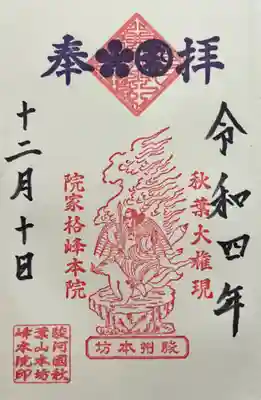 奉拝
令和四年
秋葉大権現
院家格峰本院
駿州本坊
十二月十日
駿河國秋
葉山本坊
峰本院印